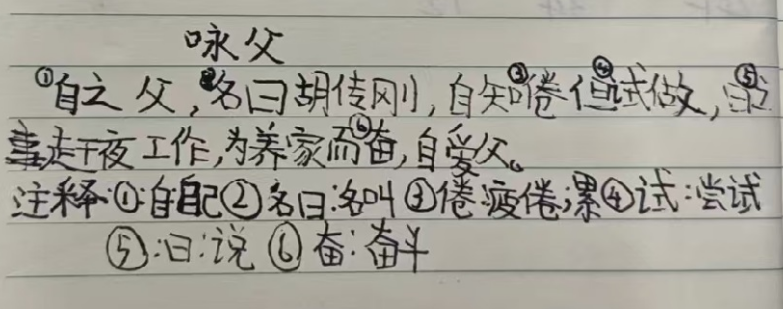 咏父
①自之父,②名曰胡传刚,自知③倦但④试做,⑤曰之
事走于夜工作,为养家而⑥奋,自爱父。
注释:①:自:自己②名曰:名叫③倦:疲倦;累④试:尝试
⑤:曰:说⑥奋:奋斗